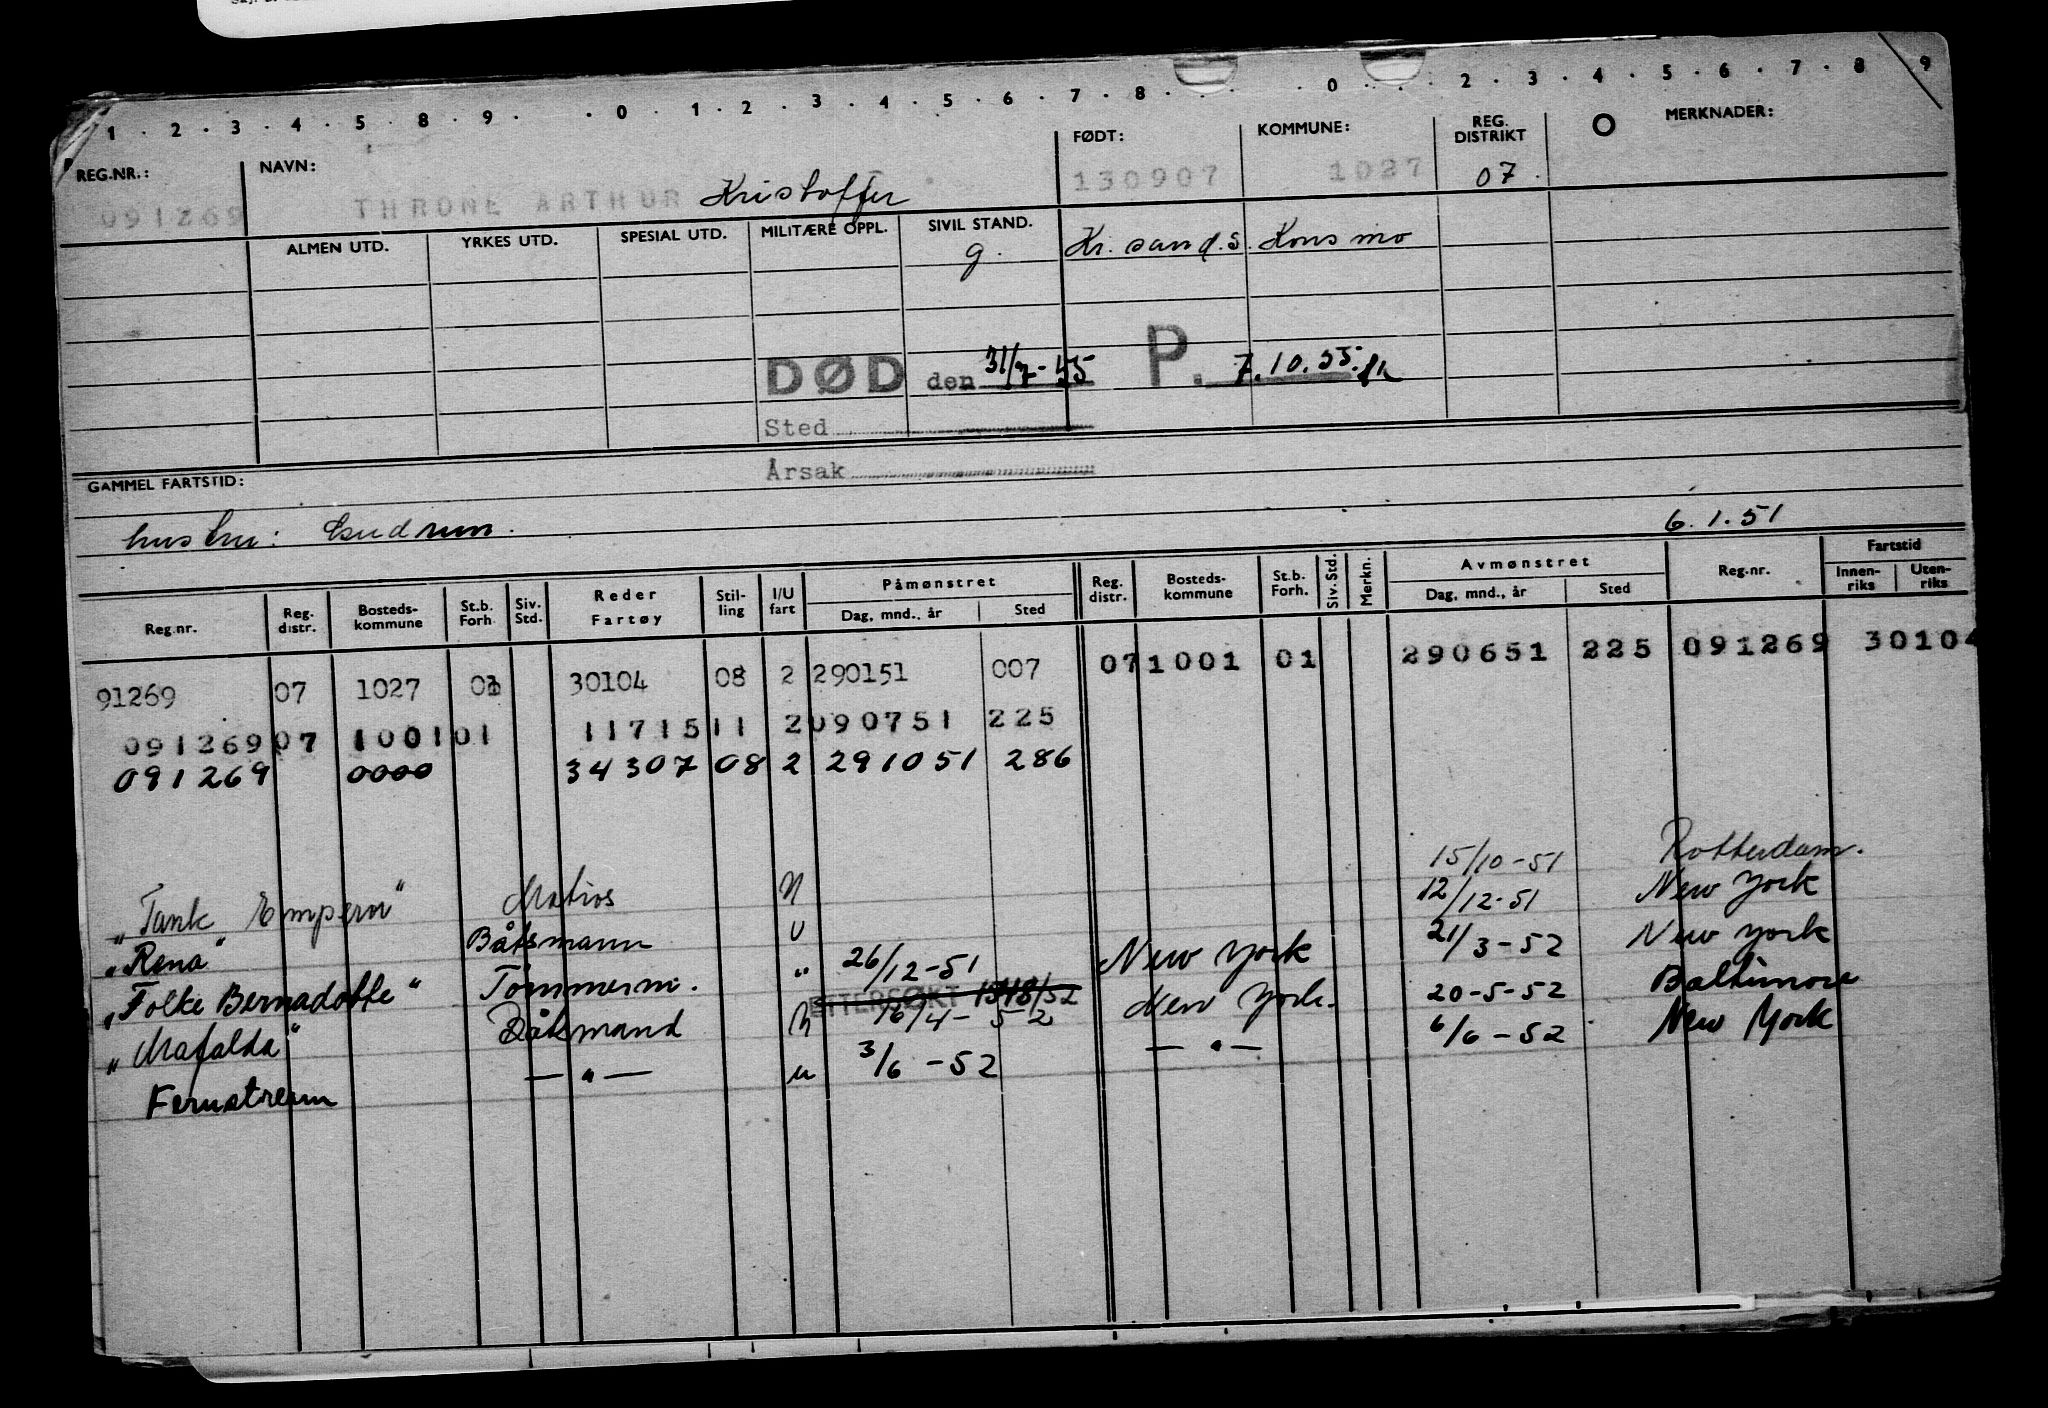 1 . 2 . 3 . 4 . 5 . 8 . 9 . . 0 . 1 . 2 . 3 . 4 . 5 . 6 . 7 . 8 . . . 0 . . 2 . 3 . 4 . 5 . 6 . 7 . 8 . 9
REG.NR.: NAVN: FØDT: KOMMUNE: REG. DISTRIKT O MERKNADER:
091269 THRONE ARTHUR Kristoffer 130907 1027 07.
ALMEN UTD. YRKES UTD. SPESIAL UTD. MILITÆRE OPPL. SIVIL STAND. Kr.sand.S. Konsmo
g.
DØD den 31/7-55 P. 7.10.55.
Sted
Årsak
GAMMEL FARTSTID:
hustru: Gudrun. 6.1.51
Reg.nr. Reg. distr. Bosteds-kommune St.b. Forh. Siv. Std. Reder Fartøy Stil-ling I/U fart Påmønstret Dag, mnd., år Sted Reg. distr. Bosteds-kommune St.b. Forh. Siv. Std. Merkn. Avmønstret Dag, mnd., år Sted Reg.nr. Fartstid Innen-riks Uten-riks
91269 07 1027 30104 08 2 290151 007 07 1001 01 290651 225 091269 30104
091269 07 1001 01 11715 11 2 090751 225
091269 0000 34307 08 2 291051 286
"Tank Emperor" Matros U 15/10-51 Rotterdam.
"Rena" Båtsmann U 12/12-51 New York
"Folke Bernadotte" Tømmerm. " 26/12-51 New York 21/3-52 New York
ETTERSØKT
"Mafalda" Båtsmand U 16/4-52 New York. 20-5-52 Baltimore
Fernstream — " — u 3/6-52 — " — 6/6-52 New York